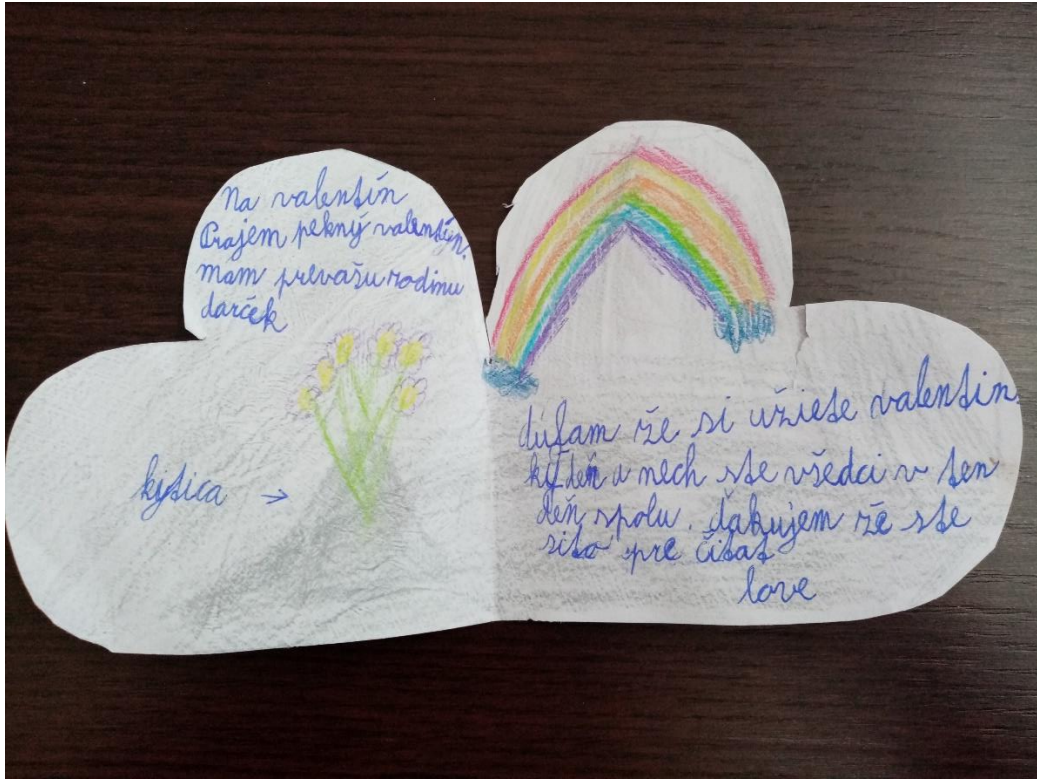 Na valentín
Prajem pekný valentýn.
mam prevašu rodinu
darček
kytica →
dúfam že si užiete valentín
ký deň a nech ste všedci v ten
deň spolu. ďakujem že ste
sito pre čitat
love